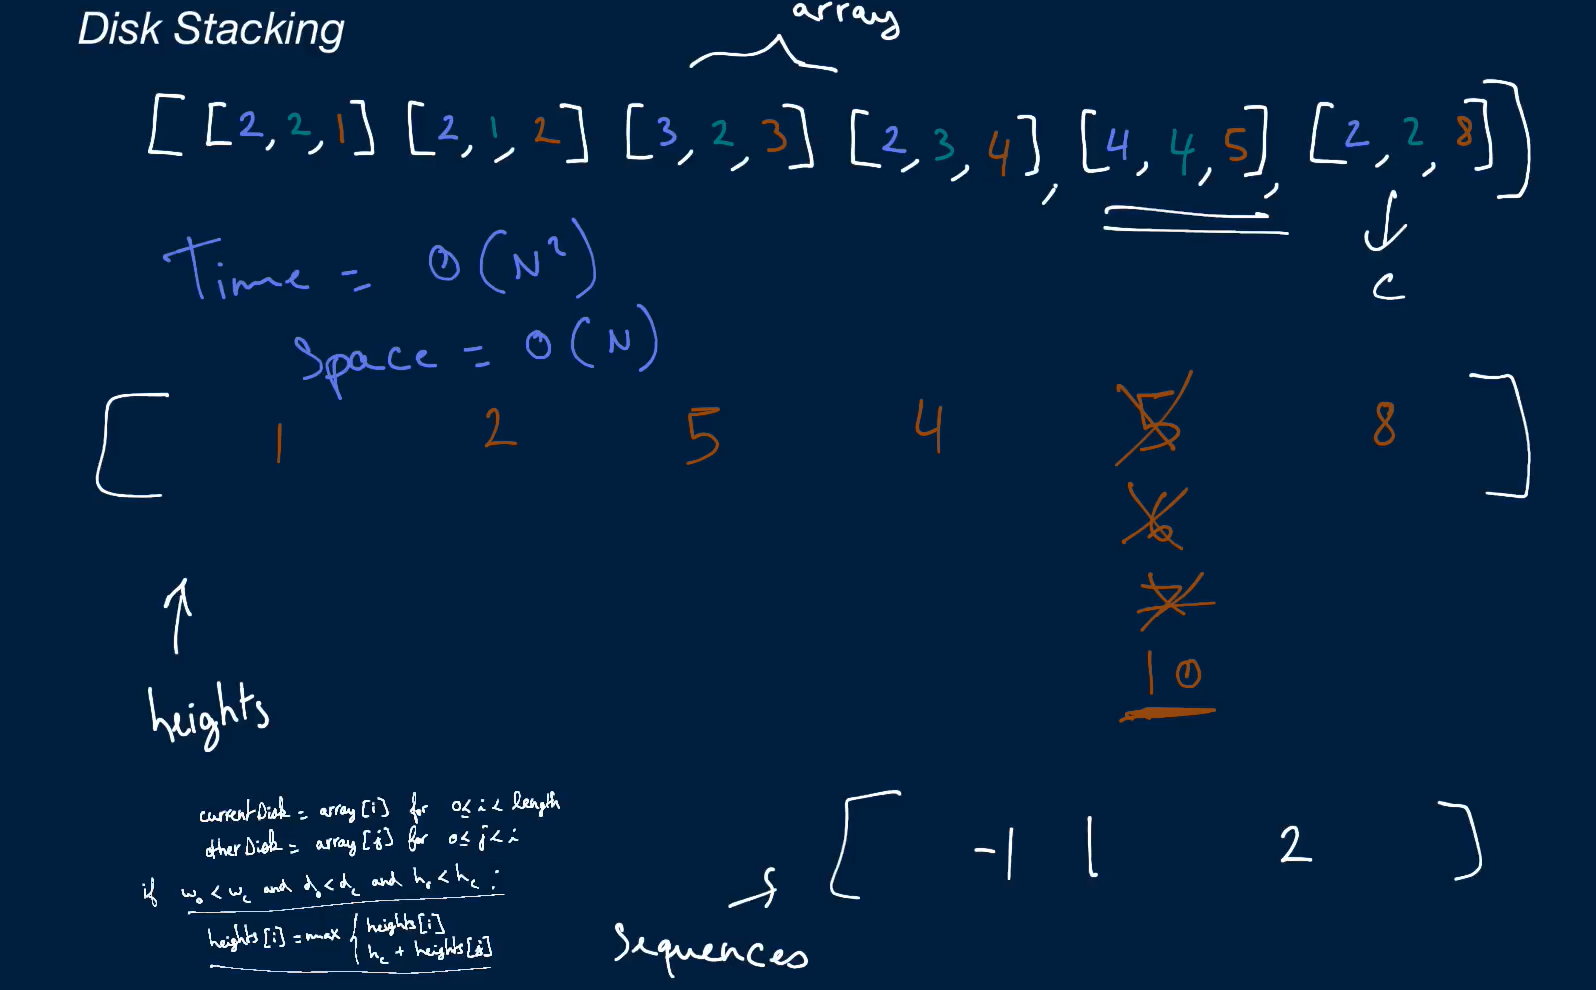 Disk Stacking
array
[[2,2,1] [2,1,2] [3,2,3] [2,3,4], [4,4,5], [2,2,8]]
c
Time = O(N²)
Space = O(N)
[ 1 2 5 4 5 8 ]
6
7
10
heights
currentDisk = array[i] for 0≤i<length
otherDisk = array[j] for 0≤j<i
if w₀<w꜀ and d₀<d꜀ and h₀<h꜀ :
heights[i] = max { heights[i]
h꜀ + heights[j]
[ -1 1 2 ]
Sequences